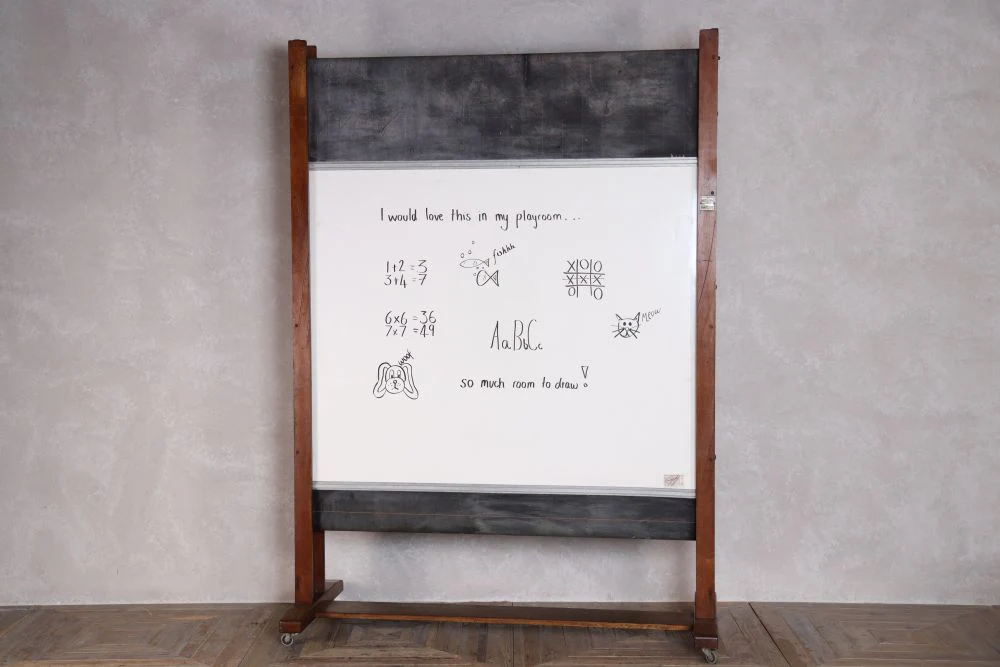 I would love this in my playroom...
fishhh
1+2=3
3+4=7
X O O
X X X
O O
6x6=36
7x7=49
AaBbCc
Meow
woof
so much room to draw!